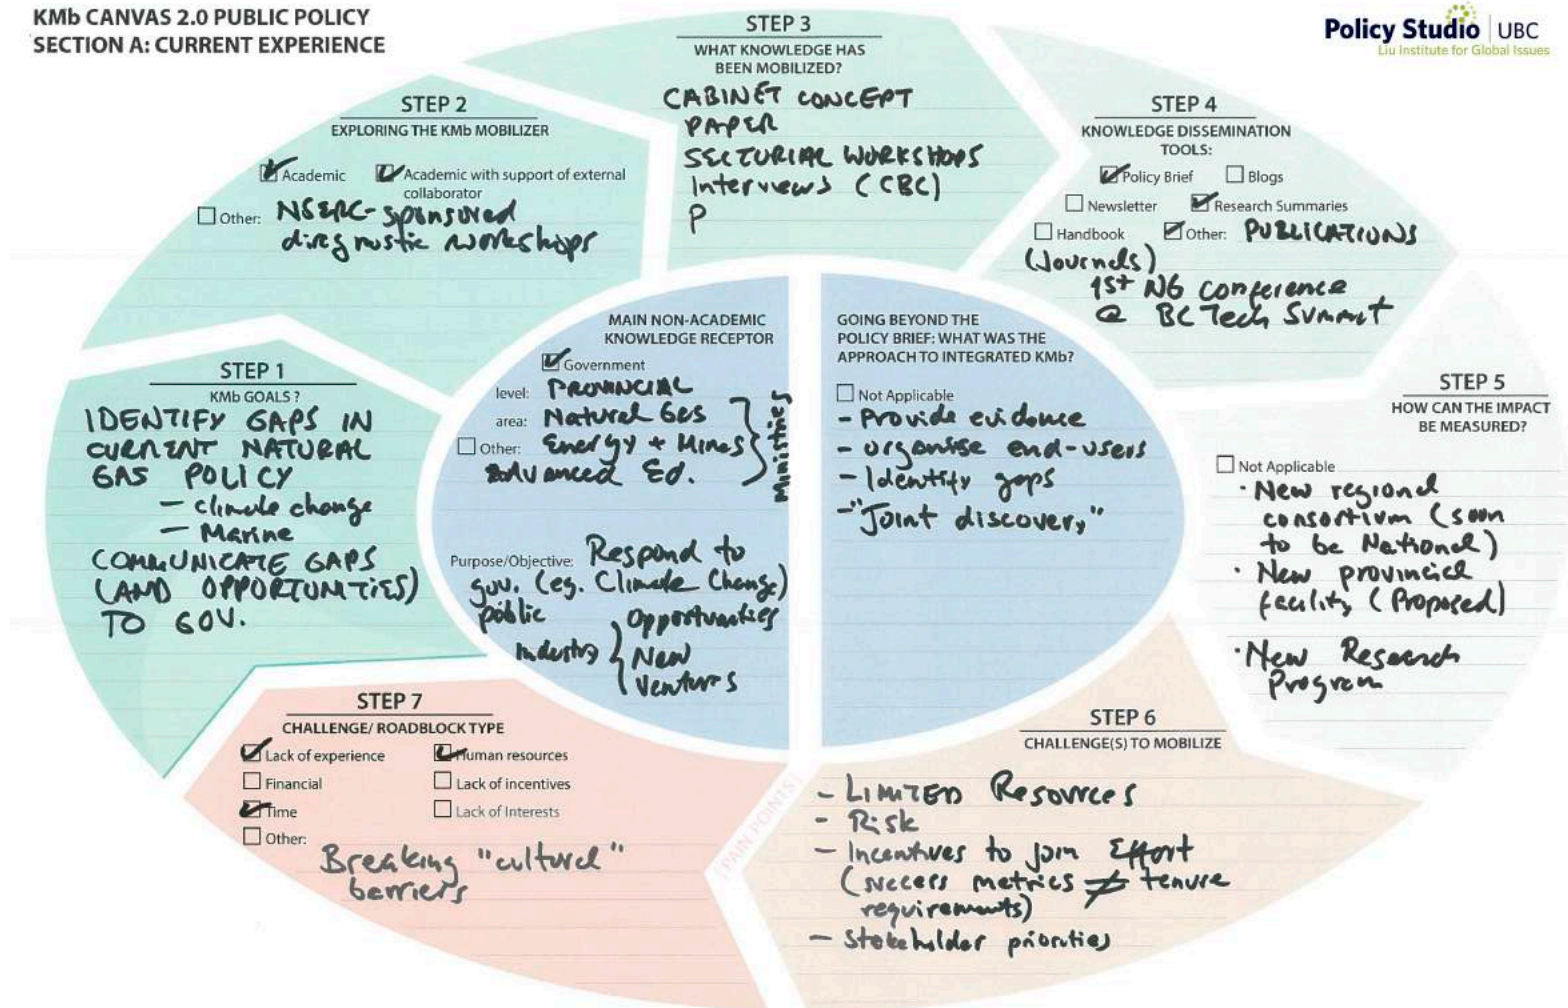 KMb CANVAS 2.0 PUBLIC POLICY
SECTION A: CURRENT EXPERIENCE
Policy Studio | UBC
Liu Institute for Global Issues
STEP 1
KMb GOALS ?
IDENTIFY GAPS IN
CURRENT NATURAL
GAS POLICY
- climate change
- Marine
COMMUNICATE GAPS
(AND OPPORTUNITIES)
TO GOV.
STEP 2
EXPLORING THE KMb MOBILIZER
Academic
Academic with support of external
collaborator
Other: NSERC-sponsored
diagnostic workshops
STEP 3
WHAT KNOWLEDGE HAS
BEEN MOBILIZED?
CABINET CONCEPT
PAPER
SECTURIAL WORKSHOPS
Interviews (CBC)
P
STEP 4
KNOWLEDGE DISSEMINATION
TOOLS:
Policy Brief
Blogs
Newsletter
Research Summaries
Handbook
Other: PUBLICATIONS
(Journals)
1st NG conference
@ BC Tech Summit
MAIN NON-ACADEMIC
KNOWLEDGE RECEPTOR
Government
level: PROVINCIAL
area: Natural Gas
Other: Energy + Mines
Advanced Ed.
Ministries
Purpose/Objective: Respond to
gov. (eg. Climate Change)
public
Opportunities
Industry
New
Ventures
GOING BEYOND THE
POLICY BRIEF: WHAT WAS THE
APPROACH TO INTEGRATED KMb?
Not Applicable
- Provide evidence
- organise end-users
- Identify gaps
- "Joint discovery"
STEP 5
HOW CAN THE IMPACT
BE MEASURED?
Not Applicable
· New regional
consortium (soon
to be National)
· New provincial
facility (Proposed)
· New Research
Program
STEP 6
CHALLENGE(S) TO MOBILIZE
- LIMITED Resources
- Risk
- Incentives to join Effort
(success metrics ≠ tenure
requirements)
- Stakeholder priorities
PAIN POINTS
STEP 7
CHALLENGE/ ROADBLOCK TYPE
Lack of experience
Human resources
Financial
Lack of incentives
Time
Lack of Interests
Other:
Breaking "cultural"
barriers